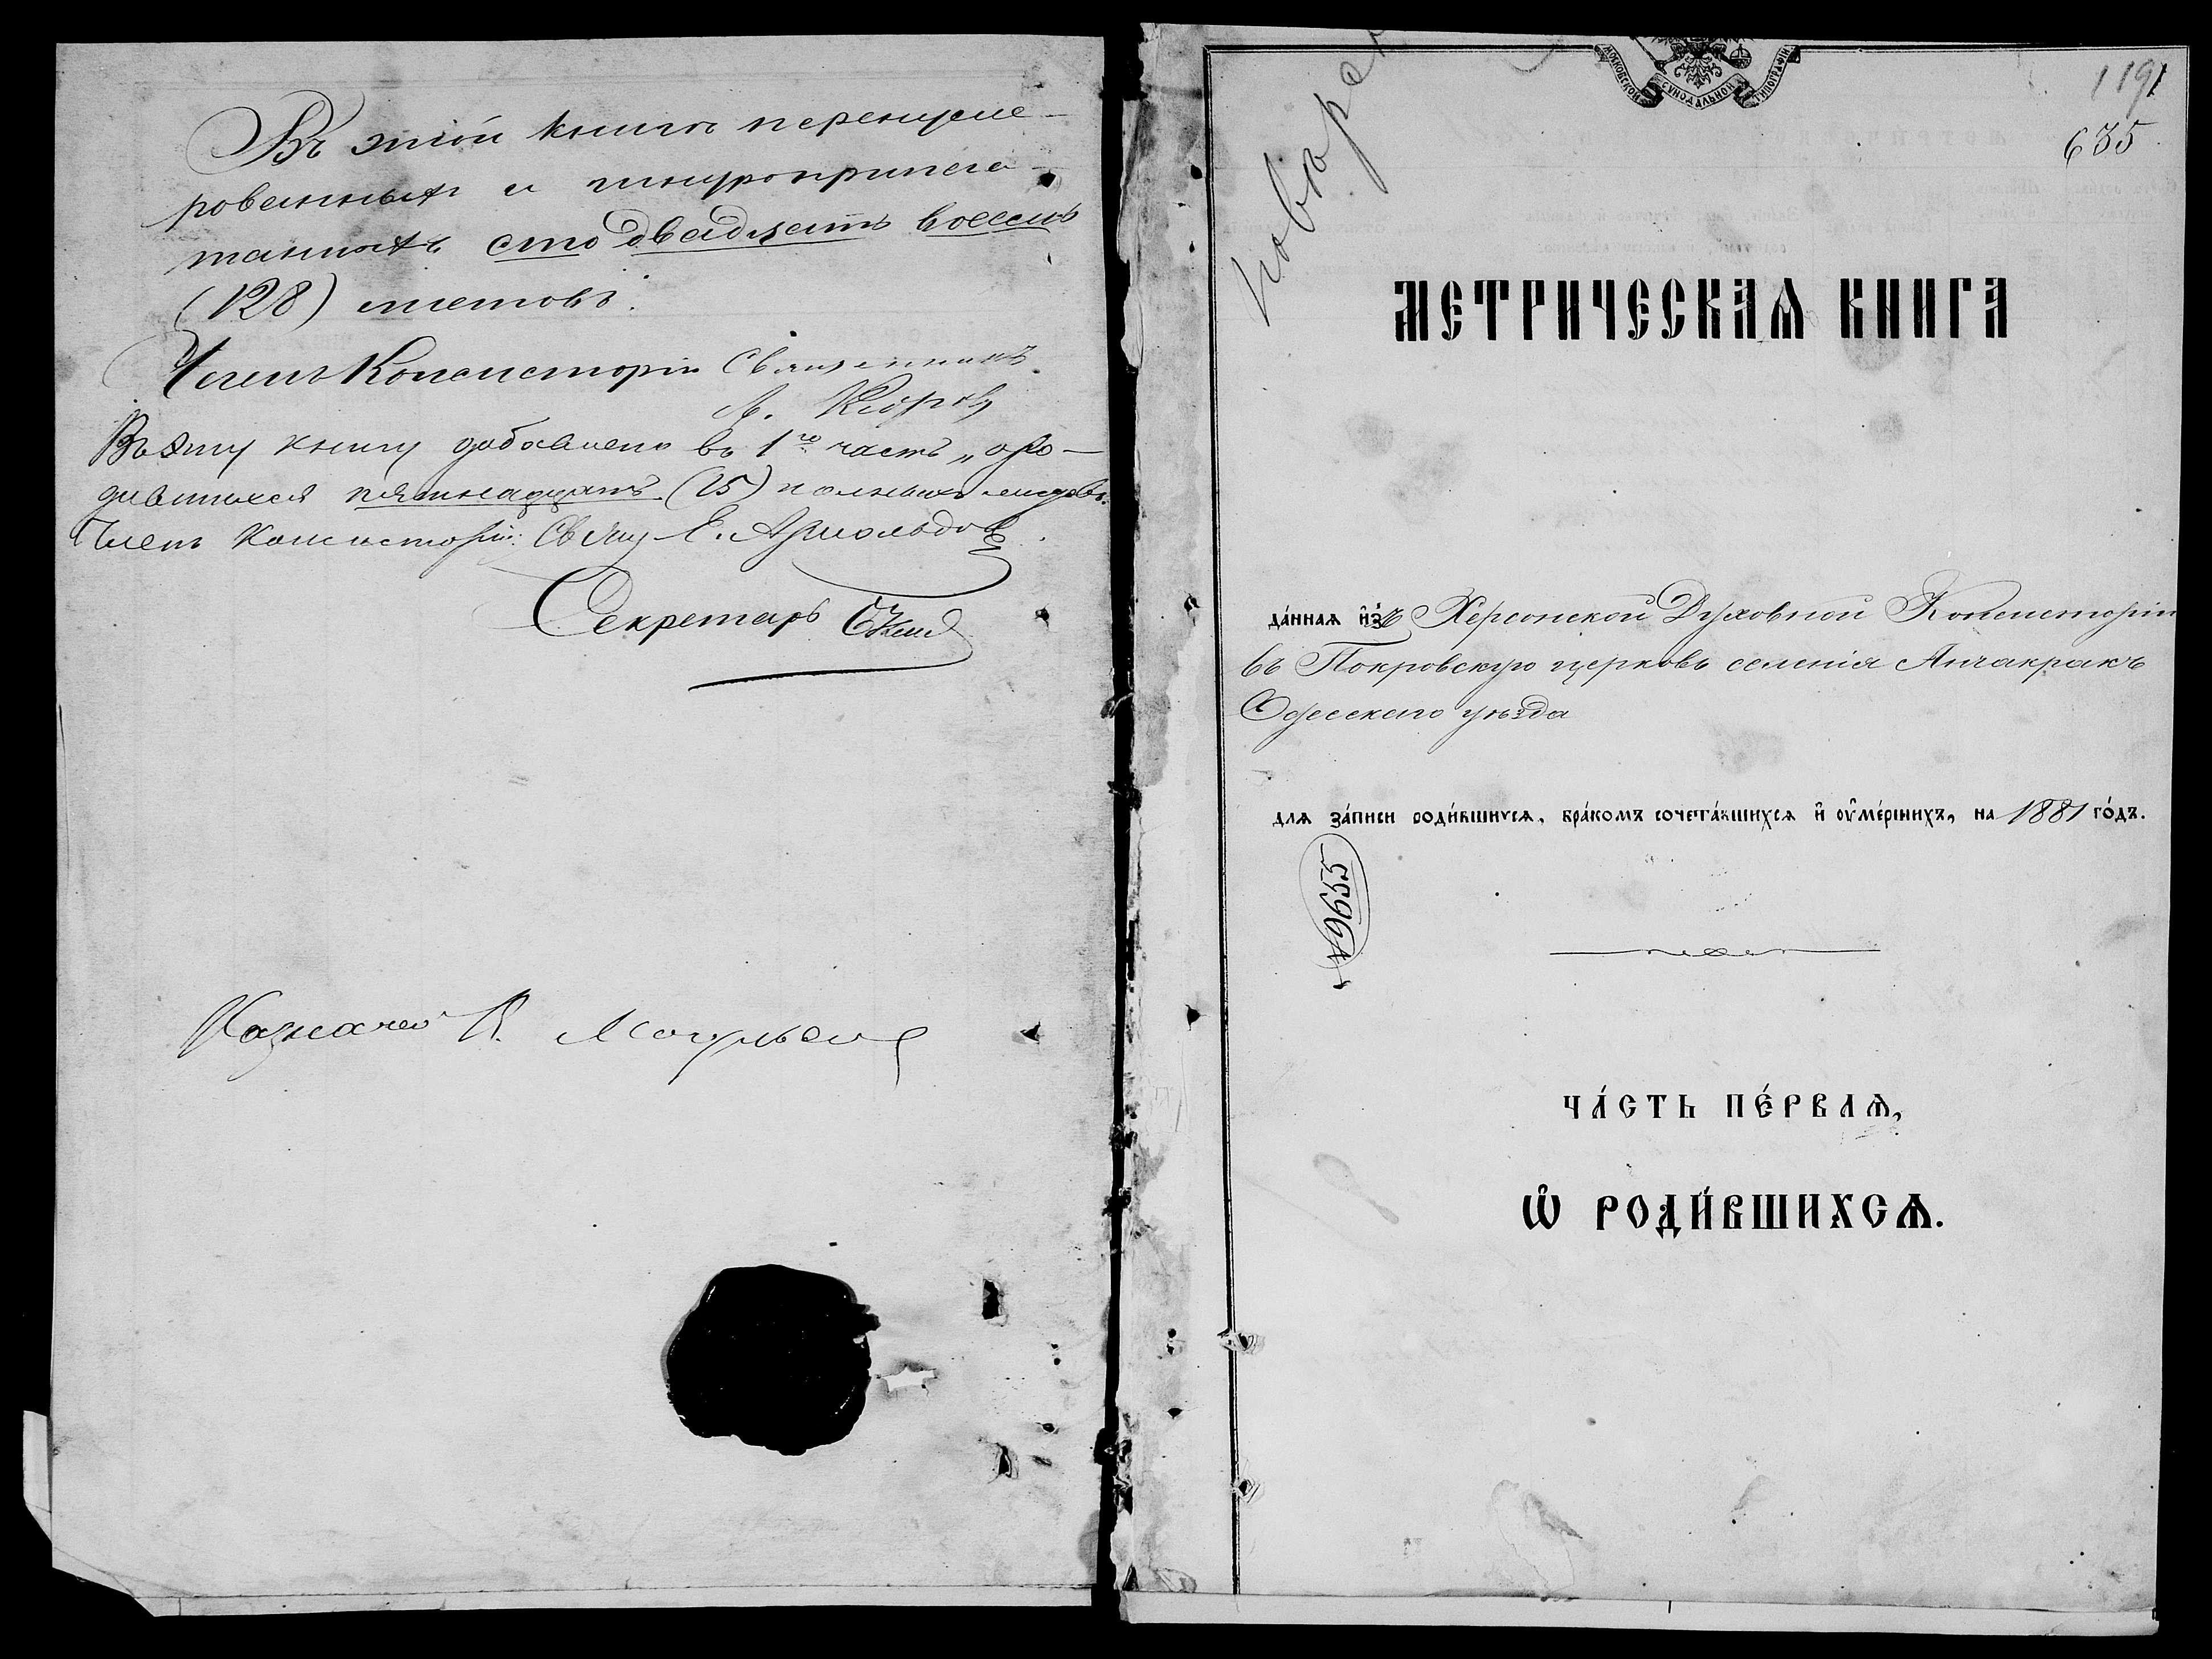 Въ этой книгѣ перенуме-
рованныхъ и шнуроприпеча-
танныхъ сто двадцать восемь
(128) листовъ.
Членъ Консисторіи Священникъ
Въ эту книгу добавлено въ 1ю часть „о ро-
дившихся пятнадцать (15) полныхъ листовъ.
Членъ Консисторіи: Свящ Е. Арнольдов
Секретарь
Казначей К.
МОСКОВСКОЙ СѴНОДАЛЬНОЙ ТИПОГРАФІИ
119
635
МЕТРИЧЕСКАѦ КНИГА
да́ннаѧ и҆зъ Херсонской Духовной Консисторіи
въ Покровскую церковь селенія Анчакракъ
Одесскаго уѣзда
длѧ за́писи роди́вшихсѧ, бра́комъ сочета́вшихсѧ и҆ ᲂу҆ме́ршихъ, на 1881 го́дъ.
№ 9655
ЧА́СТЬ ПЕ́РВАѦ,
Ѡ҆ РОДИ́ВШИХСѦ.